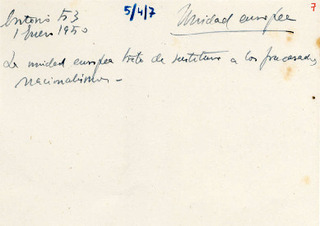 5/4/7
Unidad europea
7
1 Enero 1950
La unidad europea trata de sustituir a los fracasados
nacionalismos -